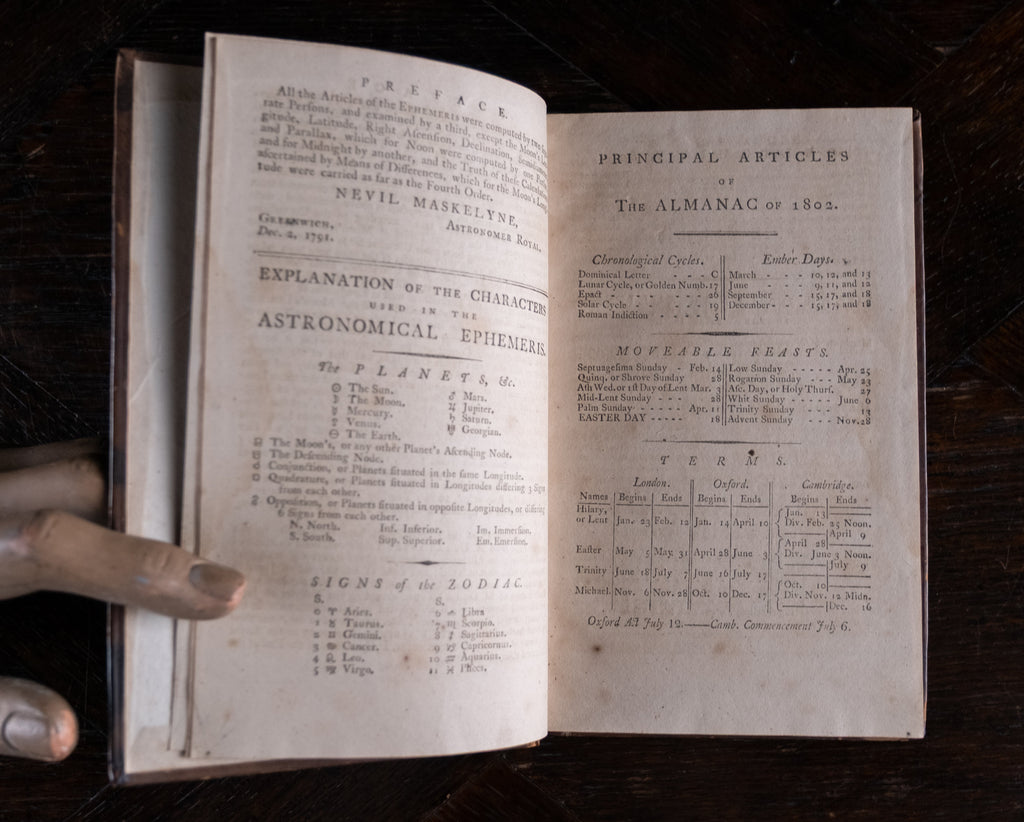 PREFACE.
All the Articles of the EPHEMERIS were computed by two
rate Persons, and examined by a third, except the Moon's
gitude, Latitude, Right Ascenſion, Declination,
and Parallax, which for Noon were computed by one
and for Midnight by another, and the Truth of theſe
aſcertained by Means of Differences, which for the Moon's
tude were carried as far as the Fourth Order.
NEVIL MASKELYNE,
ASTRONOMER ROYAL.
GREENWICH,
Dec. 2, 1791.
EXPLANATION OF THE CHARACTERS
USED IN THE
ASTRONOMICAL EPHEMERIS.
The PLANETS, &c.
☉ The Sun.
☽ The Moon.
☿ Mercury.
♀ Venus.
The Earth.
♂ Mars.
♃ Jupiter.
♄ Saturn.
♅ Georgian.
The Moon's, or any other Planet's Aſcending Node.
The Deſcending Node.
☌ Conjunction, or Planets ſituated in the ſame Longitude.
Quadrature, or Planets ſituated in Longitudes differing 3 Signs
from each other.
Oppoſition, or Planets ſituated in oppoſite Longitudes, or differing
6 Signs from each other.
N. North. Inf. Inferior. Im. Immerſion.
S. South. Sup. Superior. Em. Emerſion.
SIGNS of the ZODIAC.
S. S.
0 ♈ Aries. 6 ♎ Libra
1 ♉ Taurus. 7 ♏ Scorpio.
2 ♊ Gemini. 8 ♐ Sagittarius.
3 ♋ Cancer. 9 ♑ Capricornus.
4 ♌ Leo. 10 ♒ Aquarius.
5 ♍ Virgo. 11 ♓ Piſces.
PRINCIPAL ARTICLES
OF
THE ALMANAC OF 1802.
Chronological Cycles.
Dominical Letter - - - C
Lunar Cycle, or Golden Numb. 17
Epact - - - - 26
Solar Cycle - - - 19
Roman Indiction - - - - 5
Ember Days.
March - - - 10, 12, and 13
June - - - 9, 11, and 12
September - - - 15, 17, and 18
December - - - 15, 17, and 18
MOVEABLE FEASTS.
Septuageſima Sunday - Feb. 14
Quinq. or Shrove Sunday 28
Aſh Wed. or 1ſt Day of Lent Mar. 3
Mid-Lent Sunday - - - 28
Palm Sunday - - - - Apr. 11
EASTER DAY - - - - - 18
Low Sunday - - - - Apr. 25
Rogation Sunday - - - May 23
Aſc. Day, or Holy Thurſ. 27
Whit Sunday - - - - June 6
Trinity Sunday - - - - 13
Advent Sunday - - - Nov. 28
TERMS.
London. Oxford. Cambridge.
Names Begins Ends Begins Ends Begins Ends
Hilary, or Lent Jan. 23 Feb. 12 Jan. 14 April 10 Jan. 13 Div. Feb. 25 Noon. April 9
Eaſter May 5 May 31 April 28 June 3 April 28 Div. June 3 Noon. July 9
Trinity June 18 July 7 June 16 July 17
Michael. Nov. 6 Nov. 28 Oct. 10 Dec. 17 Oct. 10 Div. Nov. 12 Midn. Dec. 16
Oxford Act July 12.——Camb. Commencement July 6.